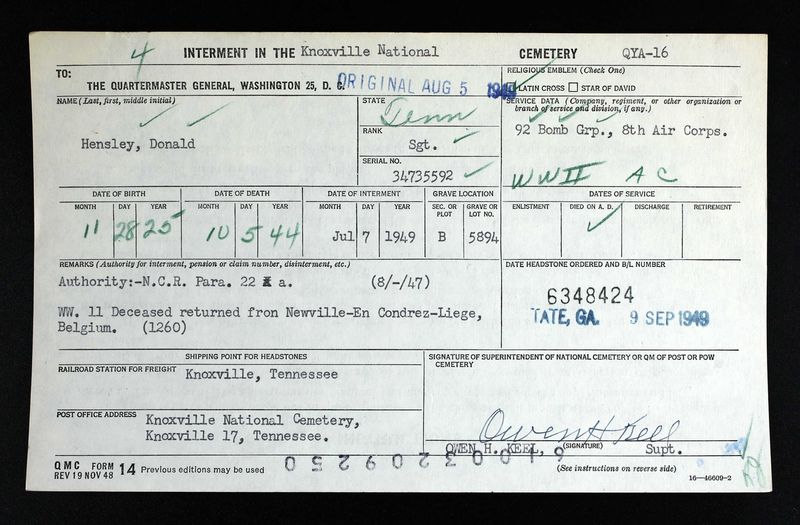 4
INTERMENT IN THE Knoxville National CEMETERY QYA-16
TO:
THE QUARTERMASTER GENERAL, WASHINGTON 25, D. C.
ORIGINAL AUG 5 1949
RELIGIOUS EMBLEM (Check One)
LATIN CROSS STAR OF DAVID
NAME (Last, first, middle initial)
Hensley, Donald
STATE
Tenn
RANK
Sgt.
SERIAL NO.
34735592
SERVICE DATA (Company, regiment, or other organization or
branch of service and division, if any.)
92 Bomb Grp., 8th Air Corps.
WWII AC
DATE OF BIRTH DATE OF DEATH DATE OF INTERMENT GRAVE LOCATION DATES OF SERVICE
MONTH DAY YEAR MONTH DAY YEAR MONTH DAY YEAR SEC. OR PLOT GRAVE OR LOT NO. ENLISTMENT DIED ON A. D. DISCHARGE RETIREMENT
11 28 25 10 5 44 Jul 7 1949 B 5894
REMARKS (Authority for interment, pension or claim number, disinterment, etc.)
Authority:-N.C.R. Para. 22 a. (8/-/47)
WW. 11 Deceased returned fron Newville-En Condrez-Liege,
Belgium. (1260)
DATE HEADSTONE ORDERED AND B/L NUMBER
6348424
TATE, GA. 9 SEP 1949
SHIPPING POINT FOR HEADSTONES
RAILROAD STATION FOR FREIGHT
Knoxville, Tennessee
POST OFFICE ADDRESS
Knoxville National Cemetery,
Knoxville 17, Tennessee.
SIGNATURE OF SUPERINTENDENT OF NATIONAL CEMETERY OR QM OF POST OR POW
CEMETERY
Owen H Keel
OWEN H. KEEL, (SIGNATURE) Supt.
QMC FORM 14 Previous editions may be used
REV 19 NOV 48
(See instructions on reverse side)
16—46609-2